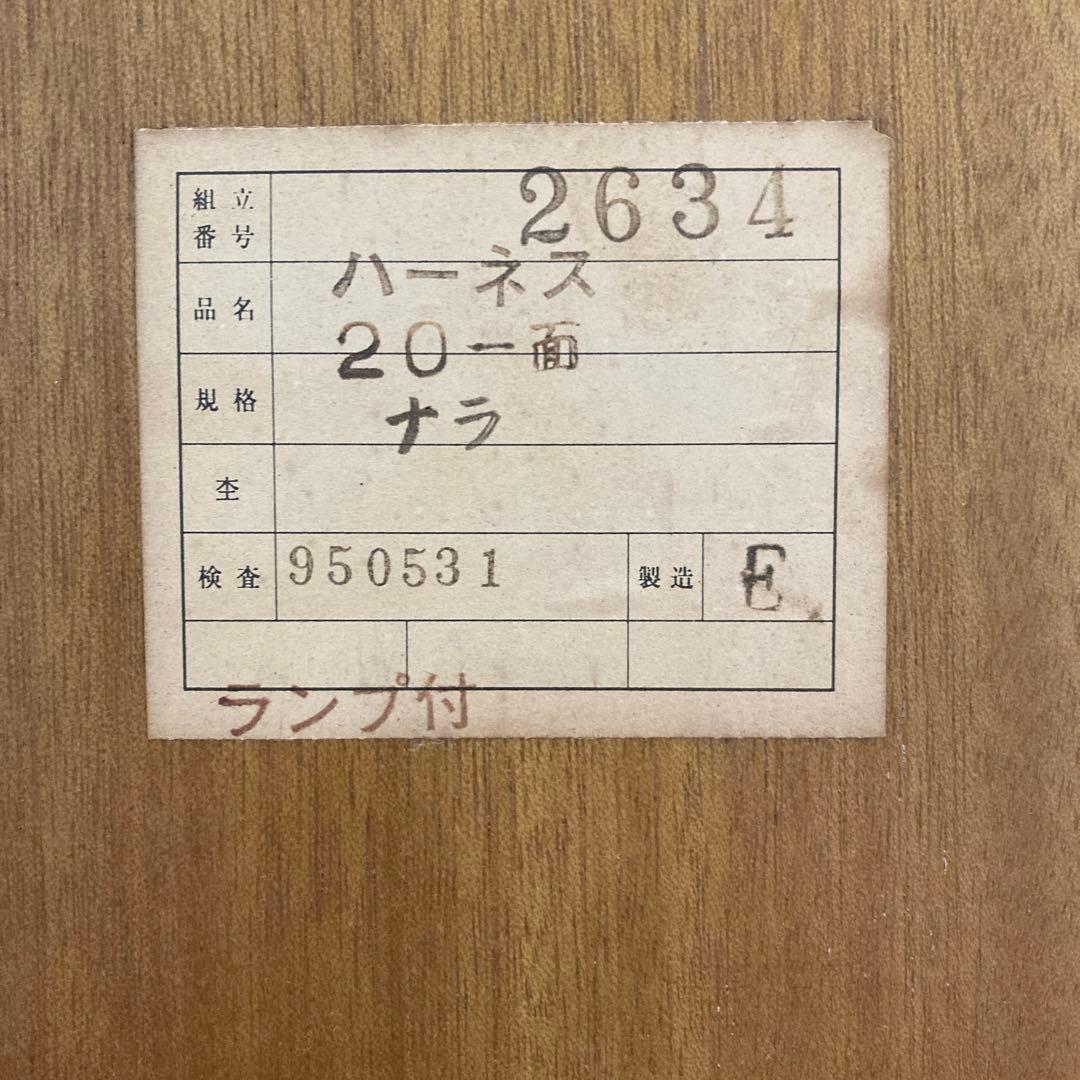 組立番号 2634
品名 ハーネス
20一面
規格 ナラ
杢
検査 950531 製造 E
ランプ付